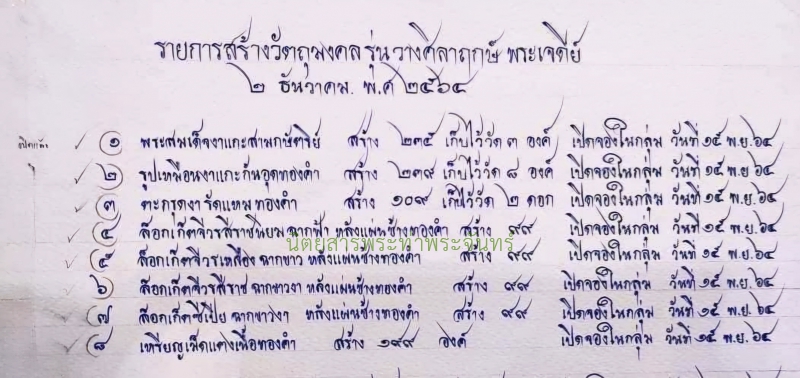 รายการสร้างวัตถุมงคล รุ่น วางศิลาฤกษ์ พระเจดีย์
๒ ธันวาคม. พ.ศ ๒๕๖๔
๑ พระสมเด็จงาแกะสามกษัตริย์ สร้าง ๒๓๕ เก็บไว้วัด ๓ องค์ เปิดจองในกลุ่ม วันที่ ๑๕ พ.ย. ๖๔
๒ รูปเหมือนงาแกะก้นอุดทองคำ สร้าง ๒๓๙ เก็บไว้วัด ๘ องค์ เปิดจองในกลุ่ม วันที่ ๑๕ พ.ย. ๖๔
๓ ตะกรุดงา รัดแหนบทองคำ สร้าง ๑๐๙ เก็บไว้วัด ๒ ดอก เปิดจองในกลุ่ม วันที่ ๑๕ พ.ย. ๖๔
๔ ล็อกเก็ตจีวรสีราชนิยม ฉากฟ้า หลังแผ่นช้างทองคำ สร้าง ๙๙ เปิดจองในกลุ่ม วันที่ ๑๕ พ.ย. ๖๔
นิตยสารพระท่าพระจันทร์
๕ ล็อกเก็ตจีวรเหลือง ฉากขาว หลังแผ่นช้างทองคำ สร้าง ๙๙ เปิดจองในกลุ่ม วันที่ ๑๕ พ.ย. ๖๔
๖ ล็อกเก็ตจีวรสีราช ฉากขาวงา หลังแผ่นช้างทองคำ สร้าง ๙๙ เปิดจองในกลุ่ม วันที่ ๑๕ พ.ย. ๖๔
๗ ล็อกเก็ตซีเปีย ฉากขาวงา หลังแผ่นช้างทองคำ สร้าง ๙๙ เปิดจองในกลุ่ม วันที่ ๑๕ พ.ย. ๖๔
๘ เหรียญเม็ดแตงเนื้อทองคำ สร้าง ๑๙๙ องค์ เปิดจองในกลุ่ม วันที่ ๑๕ พ.ย. ๖๔